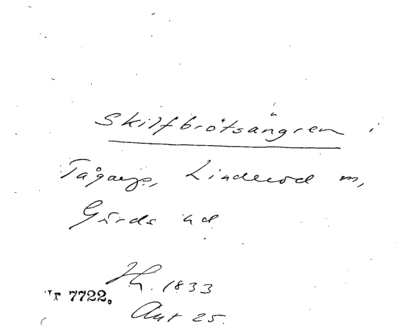 Skilfbrotsängren i
Tågarp, Linderöd sn,
Gärds hd
Hg. 1833
Akt 25.
Nr 7722.